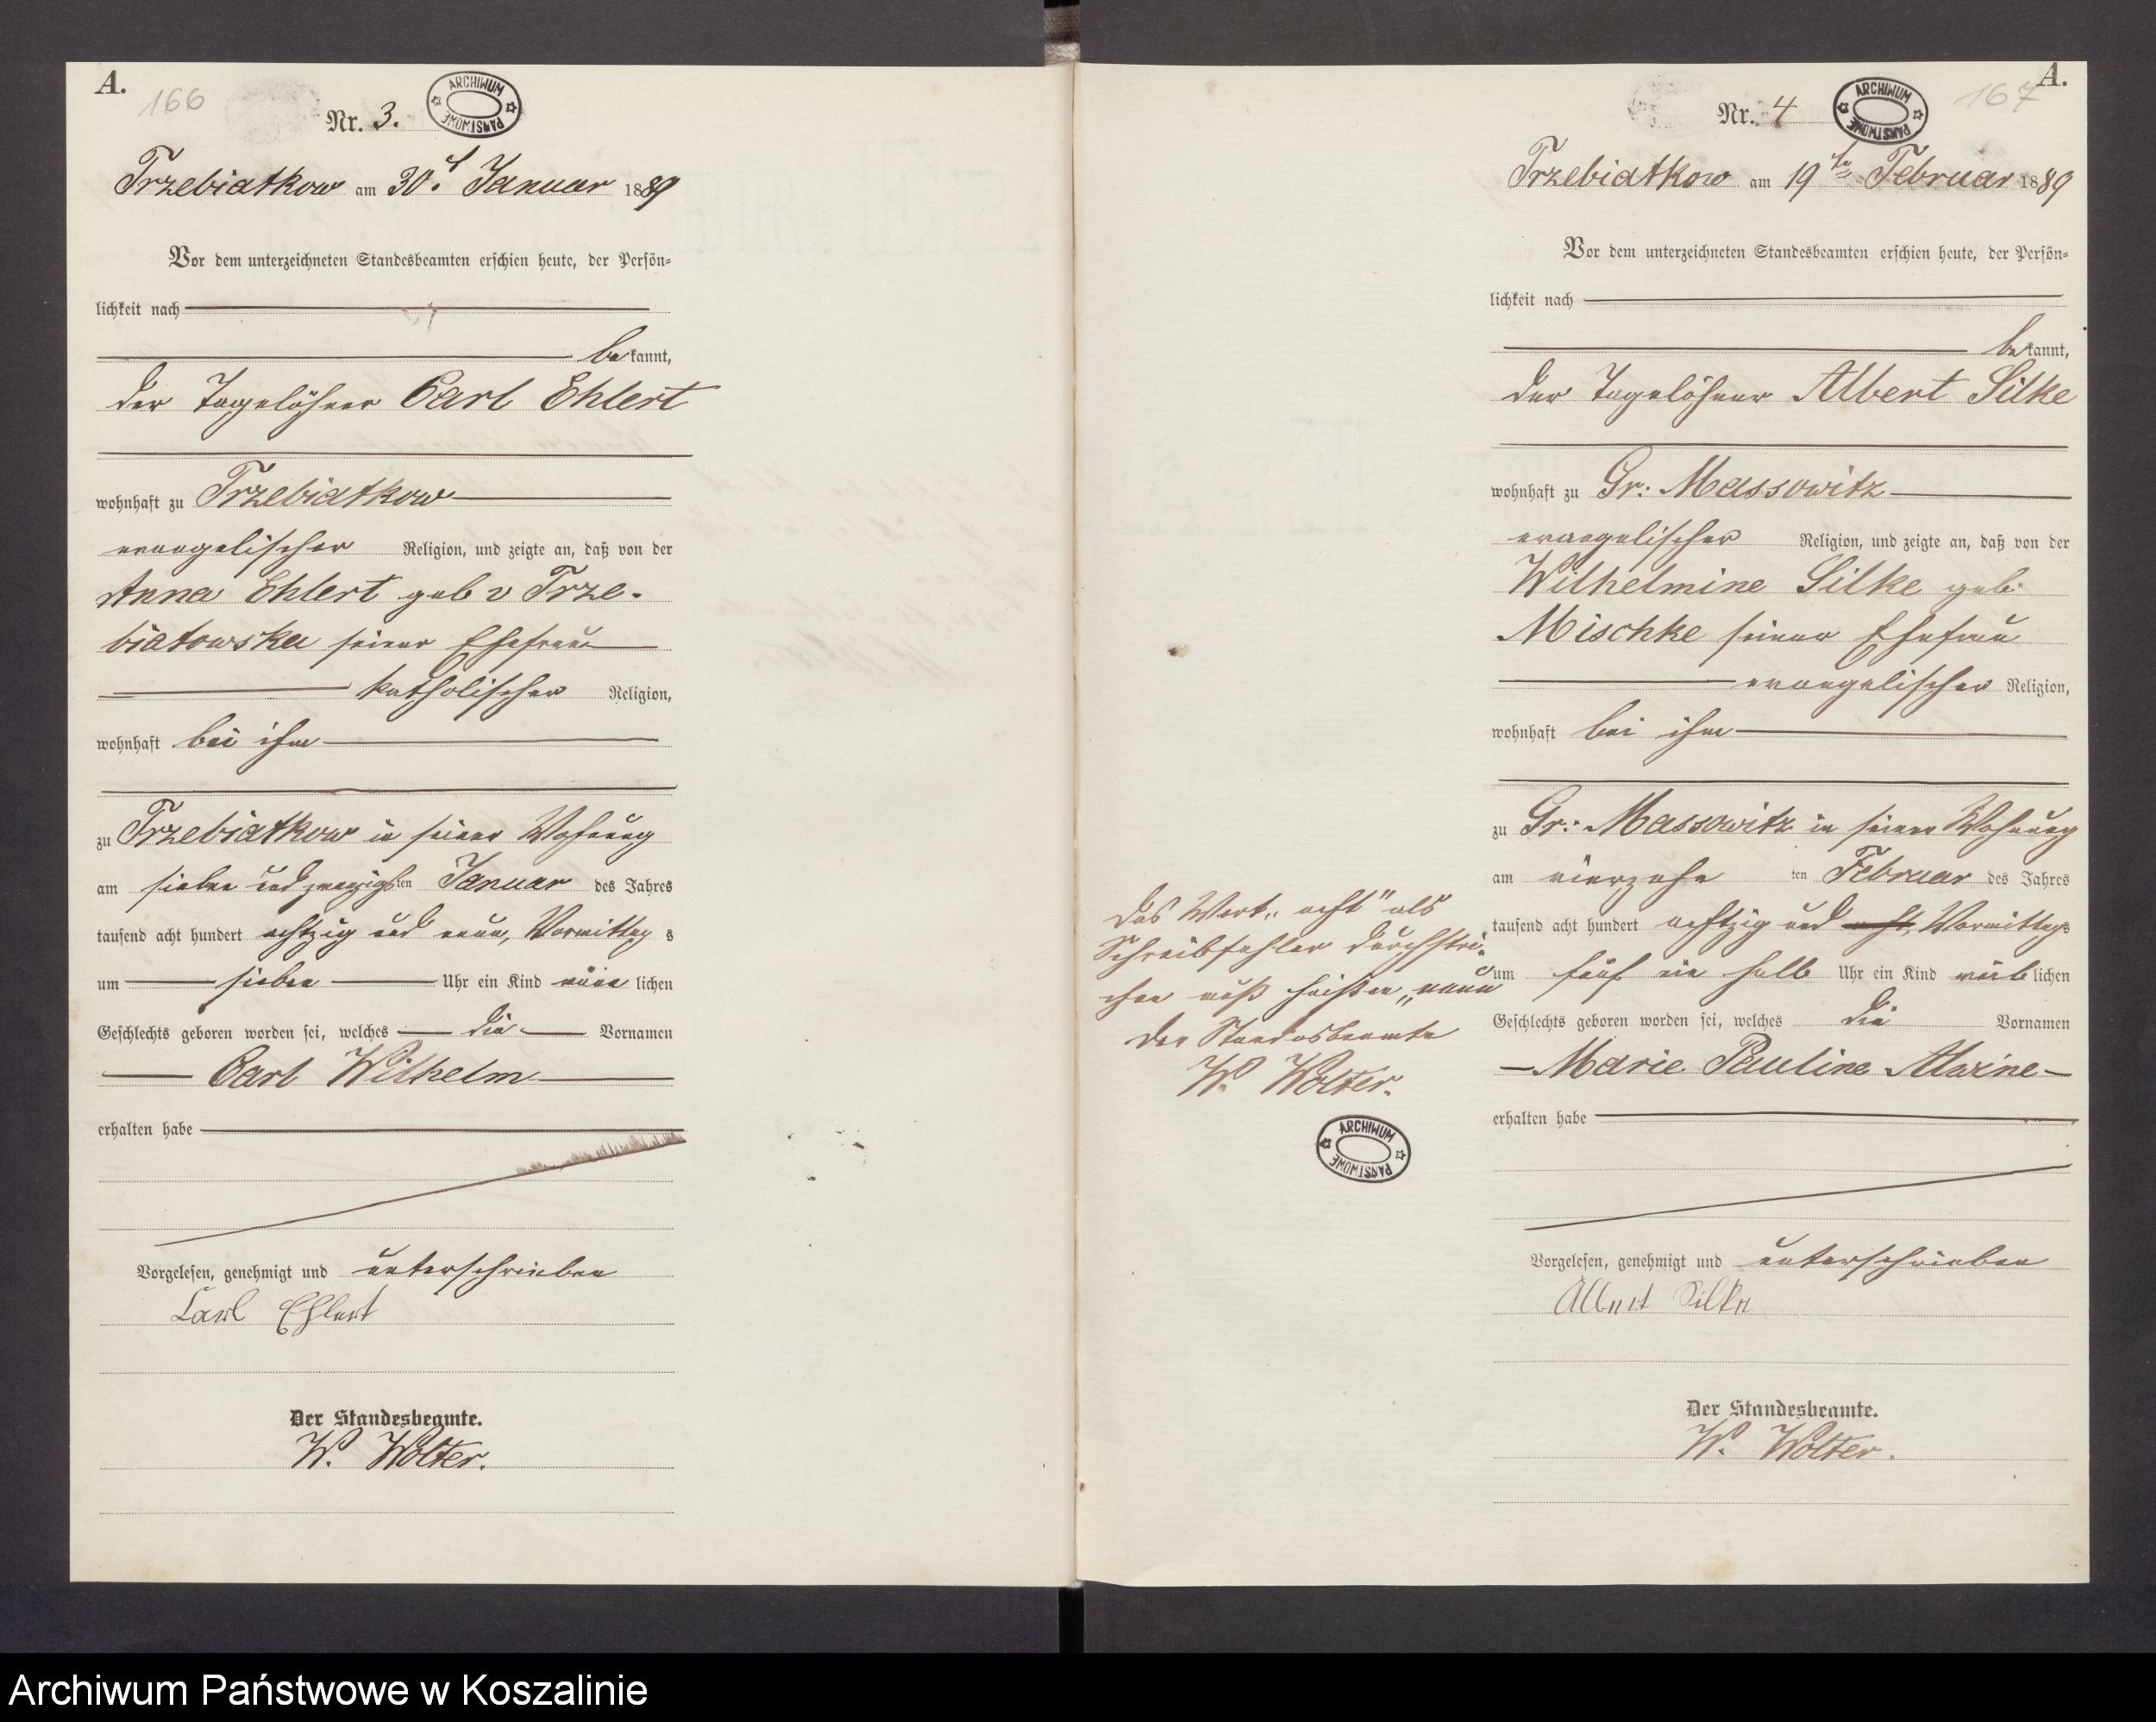 A.
166
Nr. 3.
ARCHIWUM PAŃSTWOWE
Trzebiatkow am 30. Januar 1889
Vor dem unterzeichneten Standesbeamten erschien heute, der Persön-
lichkeit nach
bekannt,
der Tagelöhner Carl Ehlert
wohnhaft zu Trzebiatkow
evangelischer Religion, und zeigte an, daß von der
Anna Ehlert geb v Trze-
biatowska seiner Ehefrau
katholischer Religion,
wohnhaft bei ihm
zu Trzebiatkow in seiner Wohnung
am sieben und zwanzigsten Januar des Jahres
tausend acht hundert achtzig und neun, Vormittags
um sieben Uhr ein Kind männlichen
Geschlechts geboren worden sei, welches die Vornamen
Carl Wilhelm
erhalten habe
Vorgelesen, genehmigt und unterschrieben
Carl Ehlert
Der Standesbeamte.
W. Wolter.
A.
167
Nr. 4
ARCHIWUM PAŃSTWOWE
Trzebiatkow am 19ten Februar 1889
Vor dem unterzeichneten Standesbeamten erschien heute, der Persön-
lichkeit nach
bekannt,
der Tagelöhner Albert Silke
wohnhaft zu Gr: Massowitz
evangelischer Religion, und zeigte an, daß von der
Wilhelmine Silke geb:
Mischke seiner Ehefrau
evangelischer Religion,
wohnhaft bei ihm
zu Gr: Massowitz in seiner Wohnung
am vierzehnten Februar des Jahres
tausend acht hundert achtzig und acht, Vormittags
um fünf ein halb Uhr ein Kind weiblichen
Geschlechts geboren worden sei, welches die Vornamen
Marie Pauline Alwine
erhalten habe
Das Wort „acht" als
Schreibfehler durchstri-
chen muß heißen „neun
Der Standesbeamte
W. Wolter.
ARCHIWUM PAŃSTWOWE
Vorgelesen, genehmigt und unterschrieben
Albert Silke
Der Standesbeamte.
W. Wolter.
Archiwum Państwowe w Koszalinie